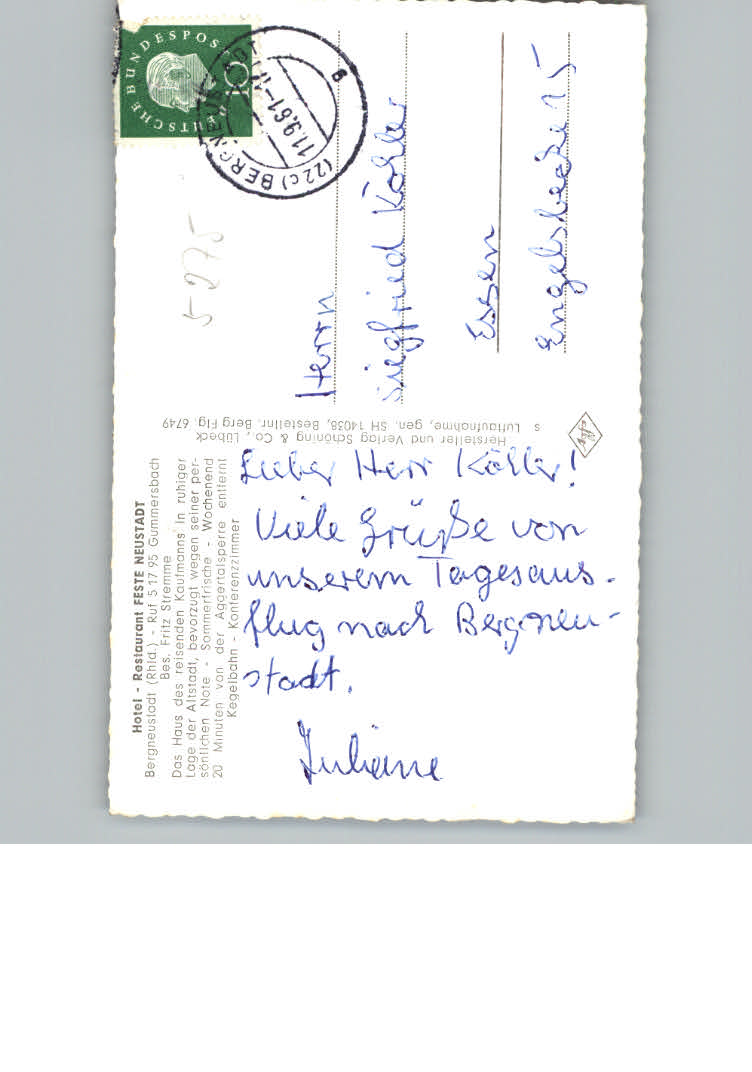 Hotel - Restaurant FESTE NEUSTADT
Bergneustadt (Rhld.) - Ruf 5 17 95 Gummersbach
Bes. Fritz Stremme
Das Haus des reisenden Kaufmanns in ruhiger
Lage der Altstadt, bevorzugt wegen seiner per-
sönlichen Note - Sommerfrische - Wochenend
20 Minuten von der Aggertalsperre entfernt
Kegelbahn - Konferenzzimmer
Lieber Herr Köhler!
Viele Grüße von
unserem Tagesaus-
flug nach Bergneu-
stadt.
Juliane
Hersteller und Verlag Schöning & Co., Lübeck
s Luftaufnahme, gen. SH 14038, Bestellnr. Berg Flg. 6749
DEUTSCHE BUNDESPOST
(22c) BERGNEUSTADT
11.9.61
a
5 275
Herrn
Siegfried Köhler
Essen